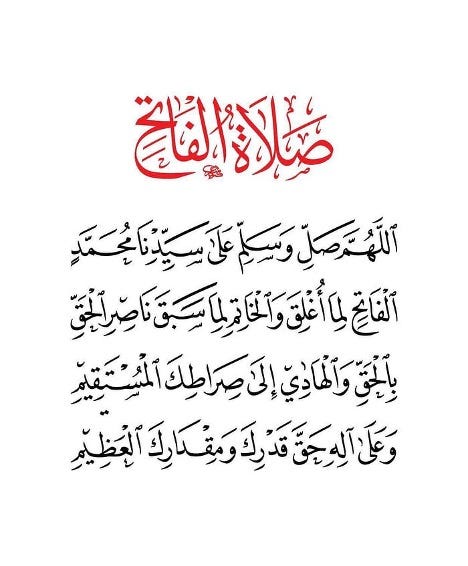 صَلَاةُ الْفَاتِحِ
اَللّٰهُمَّ صَلِّ وَسَلِّمْ عَلَىٰ سَيِّدِنَا مُحَمَّدٍ
الْفَاتِحِ لِمَا أُغْلِقَ وَالْخَاتِمِ لِمَا سَبَقَ نَاصِرِ الْحَقِّ
بِالْحَقِّ وَالْهَادِيْ إِلَىٰ صِرَاطِكَ الْمُسْتَقِيْمِ
وَعَلَىٰ آلِهِ حَقَّ قَدْرِكَ وَمِقْدَارِكَ الْعَظِيْمِ